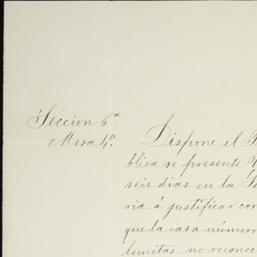 Seccion 6ª
Mesa 4ª.
Dispone el
blica se presente
seis dias en la
ria á justificar con
que la casa número
no reconoc